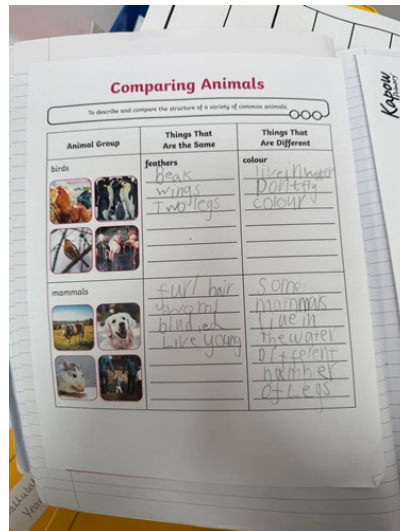 Comparing Animals
To describe and compare the structure of a variety of common animals.
Animal Group
Things That
Are the Same
Things That
Are Different
birds
feathers
Beak
wings
Two legs
colour
live in water
Dont fly
colour
mammals
fur/ hair
blinded
Live young
Some
mammals
Live in
the water
Different
number
of Legs
Kapow
Primary